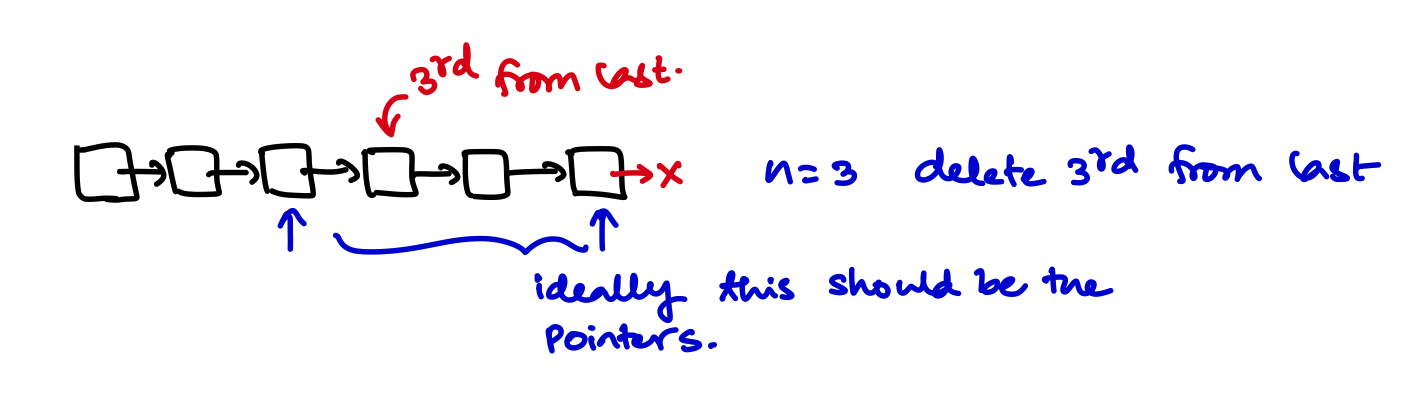 3rd from last.
x n=3 delete 3rd from last
ideally this should be the
pointers.